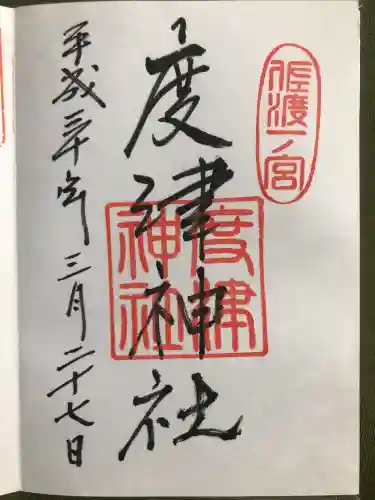 佐渡一ノ宮
度津神社
度津神社
平成三十年三月二十七日